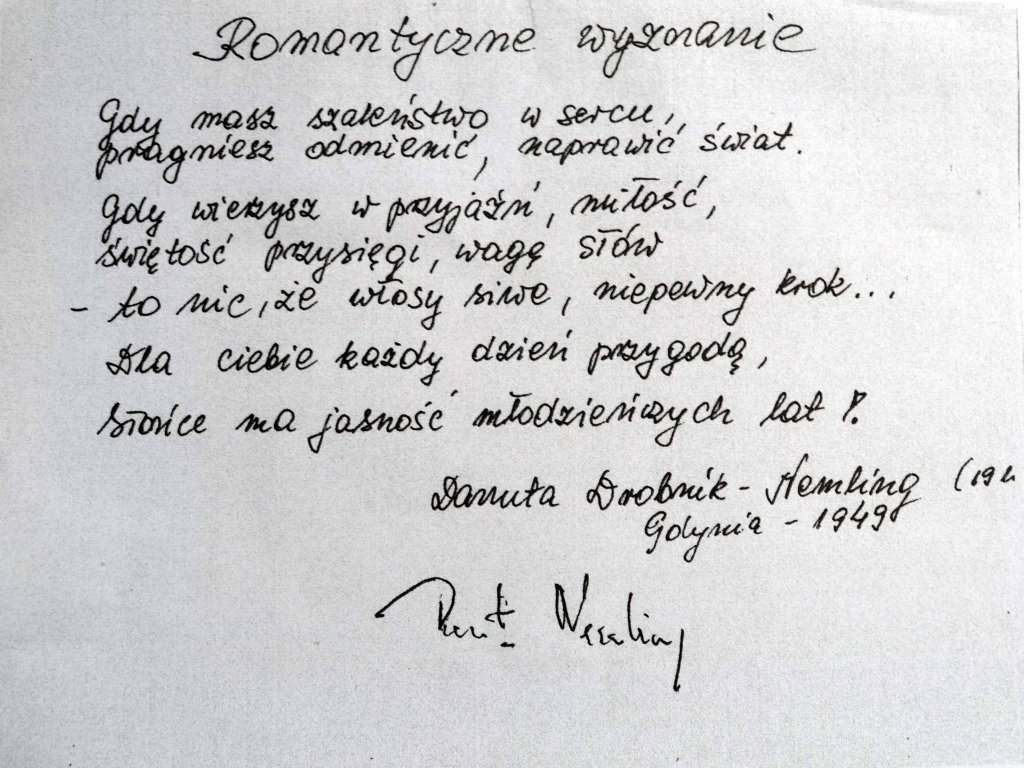 Romantyczne wyznanie
Gdy masz szaleństwo w sercu,
pragniesz odmienić, naprawić świat.
Gdy wierzysz w przyjaźń, miłość,
świętość przysięgi, wagę słów
- to nic, że włosy siwe, niepewny krok...
Dla ciebie każdy dzień przygodą,
słońce ma jasność młodzieńczych lat!
Danuta Drobnik - Hemling (19
Gdynia - 1949